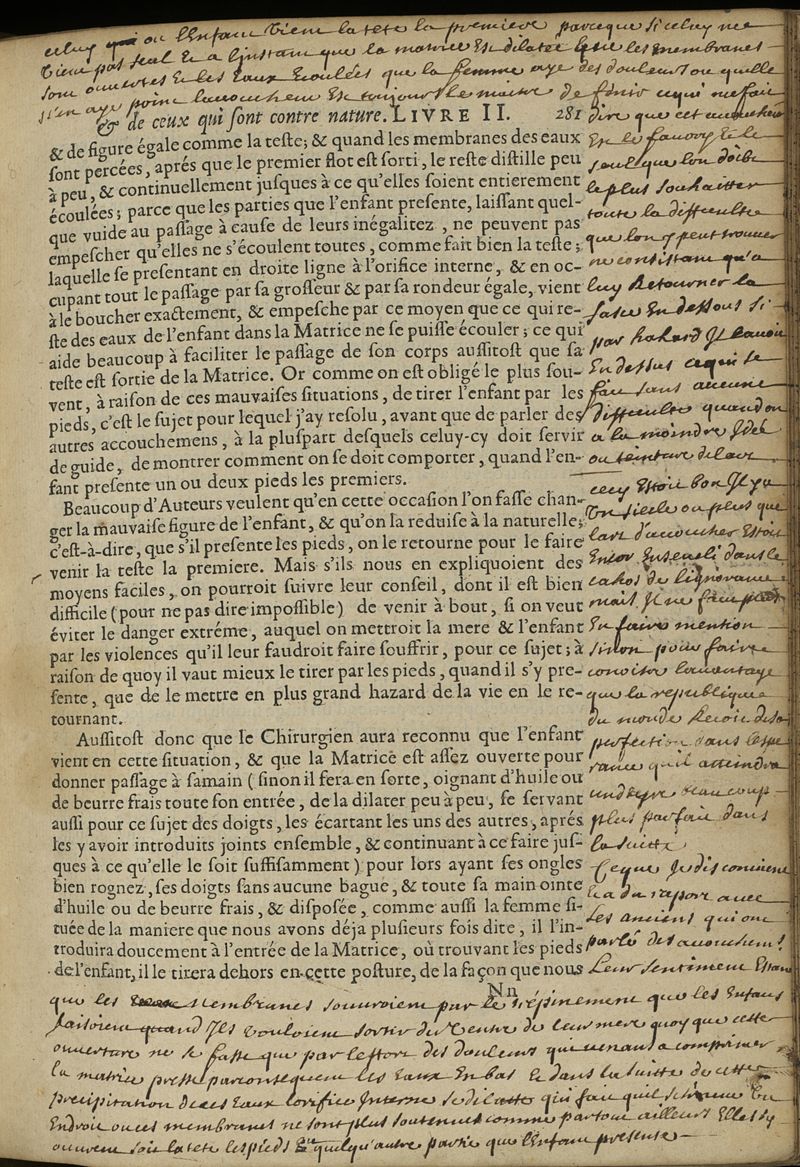 celuy ou l'Enfant vient la tete la premiere parceque si celuy ne
vient pas seul et a l'instant que la matrice est dilatée que les membranes
sont ouvertes et les Eaux Ecoulées que la femme aye des douleurs ou quelle
n'en aye point l'accoucheur est toujours le maitre de finir ce qui me fait
& de ceux qui ſont contre nature. LIVRE II. 281
& de figure égale comme la teſte; & quand les membranes des eaux
ſont percées, aprés que le premier flot eſt ſorti, le reſte diſtille peu
à peu, & continuellement juſques à ce qu'elles ſoient entierement
écoulées; parce que les parties que l'enfant preſente, laiſſant quel-
que vuide au paſſage à cauſe de leurs inégalitez, ne peuvent pas
empeſcher qu'elles ne s'écoulent toutes, comme fait bien la teſte;
laquelle ſe preſentant en droite ligne à l'orifice interne, & en oc-
cupant tout le paſſage par ſa groſſeur & par ſa rondeur égale, vient
à le boucher exactement, & empeſche par ce moyen que ce qui re-
ſte des eaux de l'enfant dans la Matrice ne ſe puiſſe écouler; ce qui
aide beaucoup à faciliter le paſſage de ſon corps auſſitoſt que ſa
teſte eſt ſortie de la Matrice. Or comme on eſt obligé le plus ſou-
vent, à raiſon de ces mauvaiſes ſituations, de tirer l'enfant par les
pieds, c'eſt le ſujet pour lequel j'ay reſolu, avant que de parler des
autres accouchemens, à la pluſpart deſquels celuy-cy doit ſervir
de guide, de montrer comment on ſe doit comporter, quand l'en-
fant preſente un ou deux pieds les premiers.
Beaucoup d'Auteurs veulent qu'en cette occaſion l'on faſſe chan-
ger la mauvaiſe figure de l'enfant, & qu'on la reduiſe à la naturelle;
c'eſt-à-dire, que s'il preſente les pieds, on le retourne pour le faire
venir la teſte la premiere. Mais s'ils nous en expliquoient des
moyens faciles, on pourroit ſuivre leur conſeil, dont il eſt bien
difficile (pour ne pas dire impoſſible) de venir à bout, ſi on veut
éviter le danger extréme, auquel on mettroit la mere & l'enfant
par les violences qu'il leur faudroit faire ſouffrir, pour ce ſujet; à
raiſon de quoy il vaut mieux le tirer par les pieds, quand il s'y pre-
ſente, que de le mettre en plus grand hazard de la vie en le re-
tournant.
Auſſitoſt donc que le Chirurgien aura reconnu que l'enfant
vient en cette ſituation, & que la Matrice eſt aſſez ouverte pour
donner paſſage à ſa main (ſinon il fera en ſorte, oignant d'huile ou
de beurre frais toute ſon entrée, de la dilater peu à peu, ſe ſervant
auſſi pour ce ſujet des doigts, les écartant les uns des autres, aprés
les y avoir introduits joints enſemble, & continuant à ce faire juſ-
ques à ce qu'elle le ſoit ſuffiſamment) pour lors ayant ſes ongles
bien rognez, ſes doigts ſans aucune bague, & toute ſa main ointe
d'huile ou de beurre frais, & diſpoſée, comme auſſi la femme ſi-
tuée de la maniere que nous avons déja pluſieurs fois dite, il l'in-
troduira doucement à l'entrée de la Matrice, où trouvant les pieds
de l'enfant, il le tirera dehors en cette poſture, de la façon que nous
Nn
dire que cet accouchem
est le favory et le
seul que lon doibve
le plus souhaitter
toute la difficulté
que lon y peut trouver
ne consistant qu'a
luy Retourner la
fasce En dessous si
par hasard Il l'avoit
En dessus ce qui se
fait sans aucune
difficulté quand on
a la moindre Idée
ou teinture de l'art
cecy Estoit bon Il y a
Un siecle ou plus que
l'art d'accoucher Estoit
Encor Enseveli dans le
cahos de lignorance
mais Il ne faut pas
En faire mention
sinon pour faire
conoitre l'avantage
que la republique
du monde Recoit de sa
perfection dans l'espe
rance qu'il atteindra
un degre beaucoup
plus parfait dans
la suitte
Ce que Je dis convient
et a du raport avec
les anciens qui ont
parlé des accouchemens
Leur sentiment Estant
que les membranes souvroient par le trépinement que les Enfans
faisoient quand Ils vouloient sortir du Ventre de leur mere quoy que cette
ouverture ne se fasse que par leffort des douleurs qui venant a comprimer
la matrice presse par consequent les Eaux En bas et dans la suitte de cette
precipitation de ces Eaux lorifice Interne se dilatte qui fait quil
Endroit ou ces membranes ne sont plus soutenues comme partout ailleurs Elles sy
ouvrent soit la tete les pieds ou quelqu'autre partie que l'Enfant presente